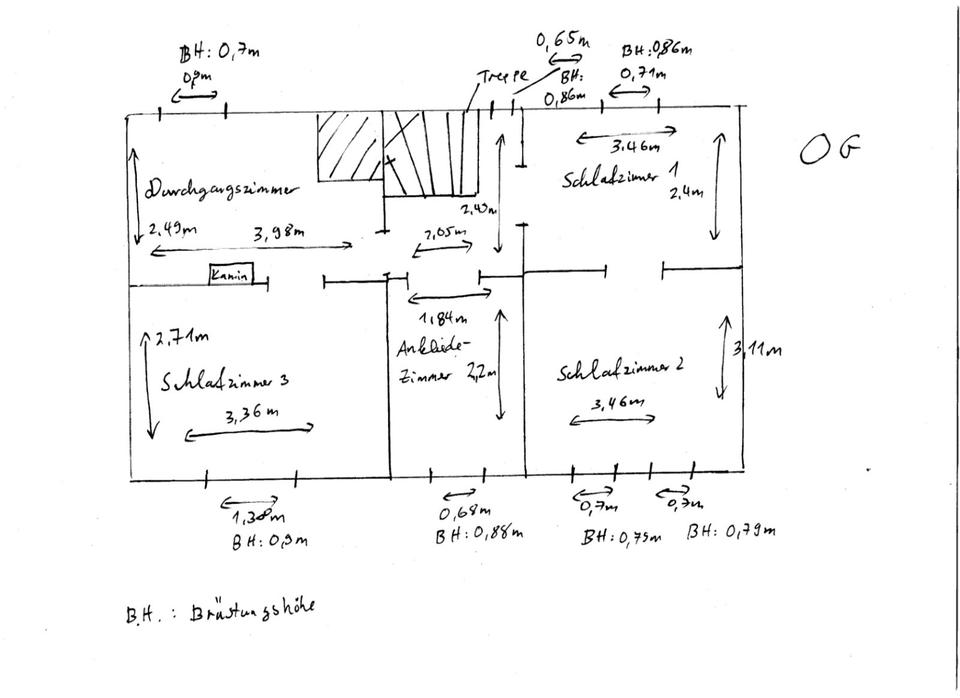 BH: 0,7m
0,9m
0,65m
BH:
0,86m
BH: 0,86m
0,71m
Treppe
OG
3,46m
Schlafzimmer 1
2,4m
Durchgangszimmer
2,49m
3,98m
2,05m
Kamin
1,84m
Ankleide-
Zimmer 2,2m
2,71m
Schlafzimmer 3
3,36m
3,11m
Schlafzimmer 2
3,46m
1,38m
BH: 0,9m
0,68m
BH: 0,88m
0,7m
BH: 0,79m
0,7m
BH: 0,79m
B.H. : Brüstungshöhe